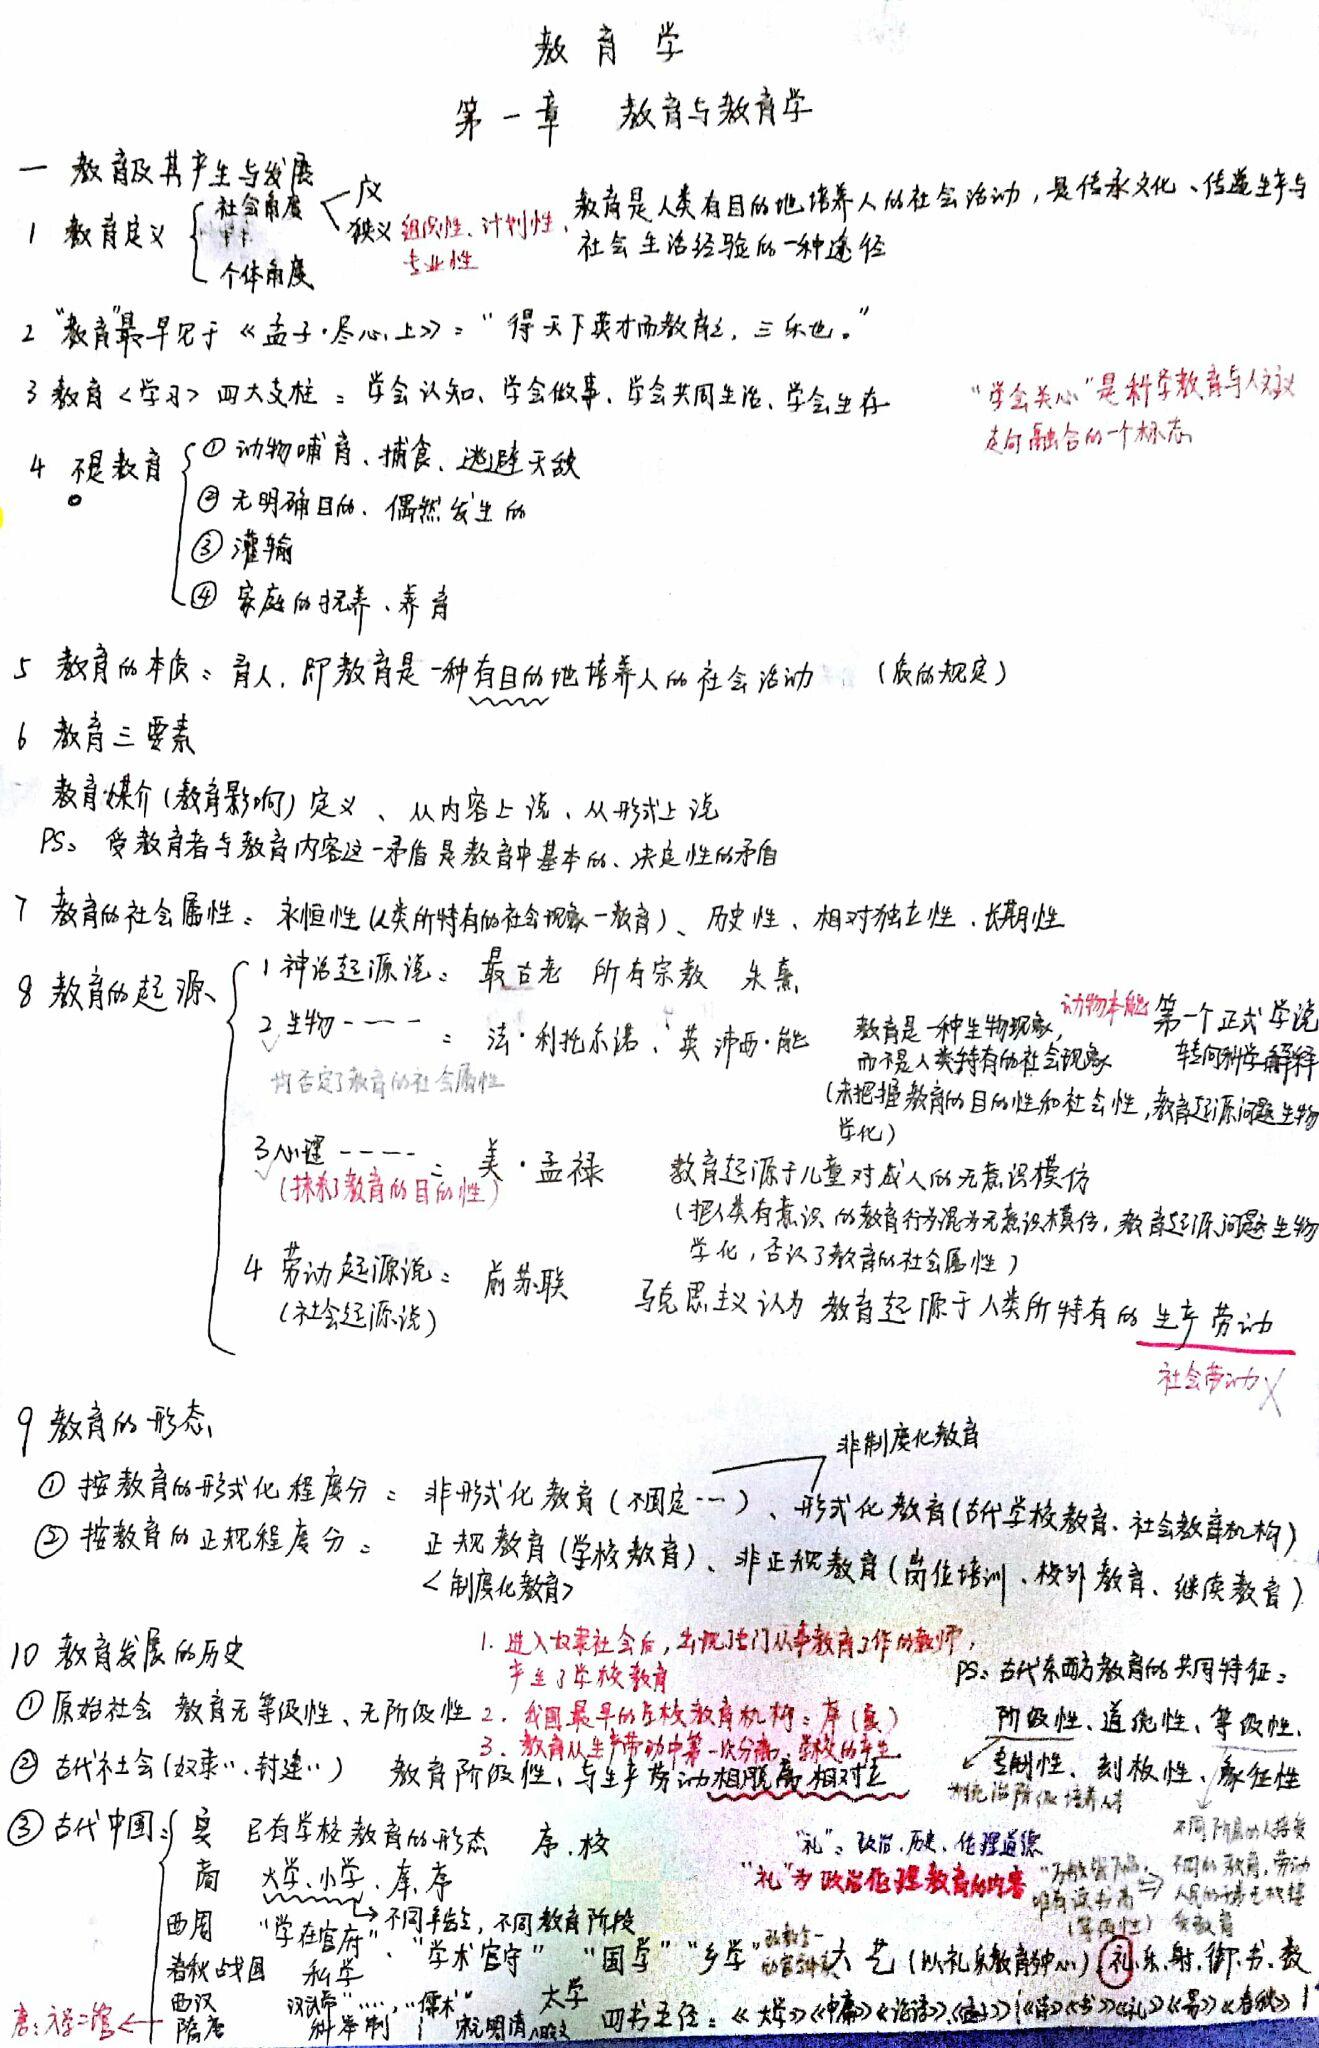 教育学
第一章 教育与教育学
一 教育及其产生与发展
1 教育定义
社会角度
广义
狭义 组织性、计划性、
专业性
个体角度
教育是人类有目的地培养人的社会活动，是传承文化、传递生产与
社会生活经验的一种途径
2 "教育"最早见于《孟子·尽心上》："得天下英才而教育之，三乐也。"
3 教育<学习>四大支柱：学会认知、学会做事、学会共同生活、学会生存
"学会关心"是科学教育与人文
走向融合的一个标志
4 不是教育
① 动物哺育、捕食、逃避天敌
② 无明确目的、偶然发生的
③ 灌输
④ 家庭的抚养、养育
5 教育的本质：育人，即教育是一种有目的地培养人的社会活动 （质的规定）
6 教育三要素
教育媒介（教育影响）定义、从内容上说、从形式上说
PS：受教育者与教育内容这一矛盾是教育中基本的、决定性的矛盾
7 教育的社会属性：永恒性（人类所特有的社会现象—教育）、历史性、相对独立性、长期性
8 教育的起源
1 神话起源说：最古老 所有宗教 朱熹
2 生物----：法·利托尔诺、英 沛西·能
均否定了教育的社会属性
教育是一种生物现象，
而不是人类特有的社会现象
动物本能
第一个正式学说
转向科学解释
（未把握教育的目的性和社会性，教育起源问题生物
学化）
3 心理----：美·孟禄 教育起源于儿童对成人的无意识模仿
（抹杀了教育的目的性）
（把人类有意识的教育行为混为无意识模仿，教育起源问题生物
学化，否认了教育的社会属性）
4 劳动起源说：前苏联 马克思主义认为 教育起源于人类所特有的生产劳动
（社会起源说）
社会劳动 X
9 教育的形态
非制度化教育
① 按教育的形式化程度分：非形式化教育（不固定…）、形式化教育（古代学校教育、社会教育机构）
② 按教育的正规程度分：正规教育（学校教育）、非正规教育（岗位培训、校外教育、继续教育）
<制度化教育>
10 教育发展的历史
1. 进入奴隶社会后，出现专门从事教育工作的教师，
产生了学校教育
PS：古代东西方教育的共同特征：
① 原始社会 教育无等级性、无阶级性
2. 我国最早的学校教育机构：庠（夏）
3. 教育从生产劳动中第一次分离：学校的产生
阶级性、道统性、等级性、
专制性、刻板性、象征性
② 古代社会（奴隶…封建…） 教育阶级性、与生产劳动相脱离相对立
为统治阶级培养人才
不同阶层的人接受
不同的教育，劳动
③ 古代中国：
夏 已有学校教育的形态 序、校
"礼"：政治、历史、伦理道德
"礼"为政治伦理教育的内容
商 大学、小学、庠、序
不同年龄，不同教育阶段
（等级性）
西周 "学在官府"、"学术官守" "国学" "乡学" 六艺（以礼乐教育为中心）礼、乐、射、御、书、数
春秋战国 私学
西汉 汉武帝"…"，"儒术" 太学
唐：六学二馆
隋唐 科举制
宋明清 八股文
四书五经：《大学》《中庸》《论语》《孟子》｜《诗》《书》《礼》《易》《春秋》